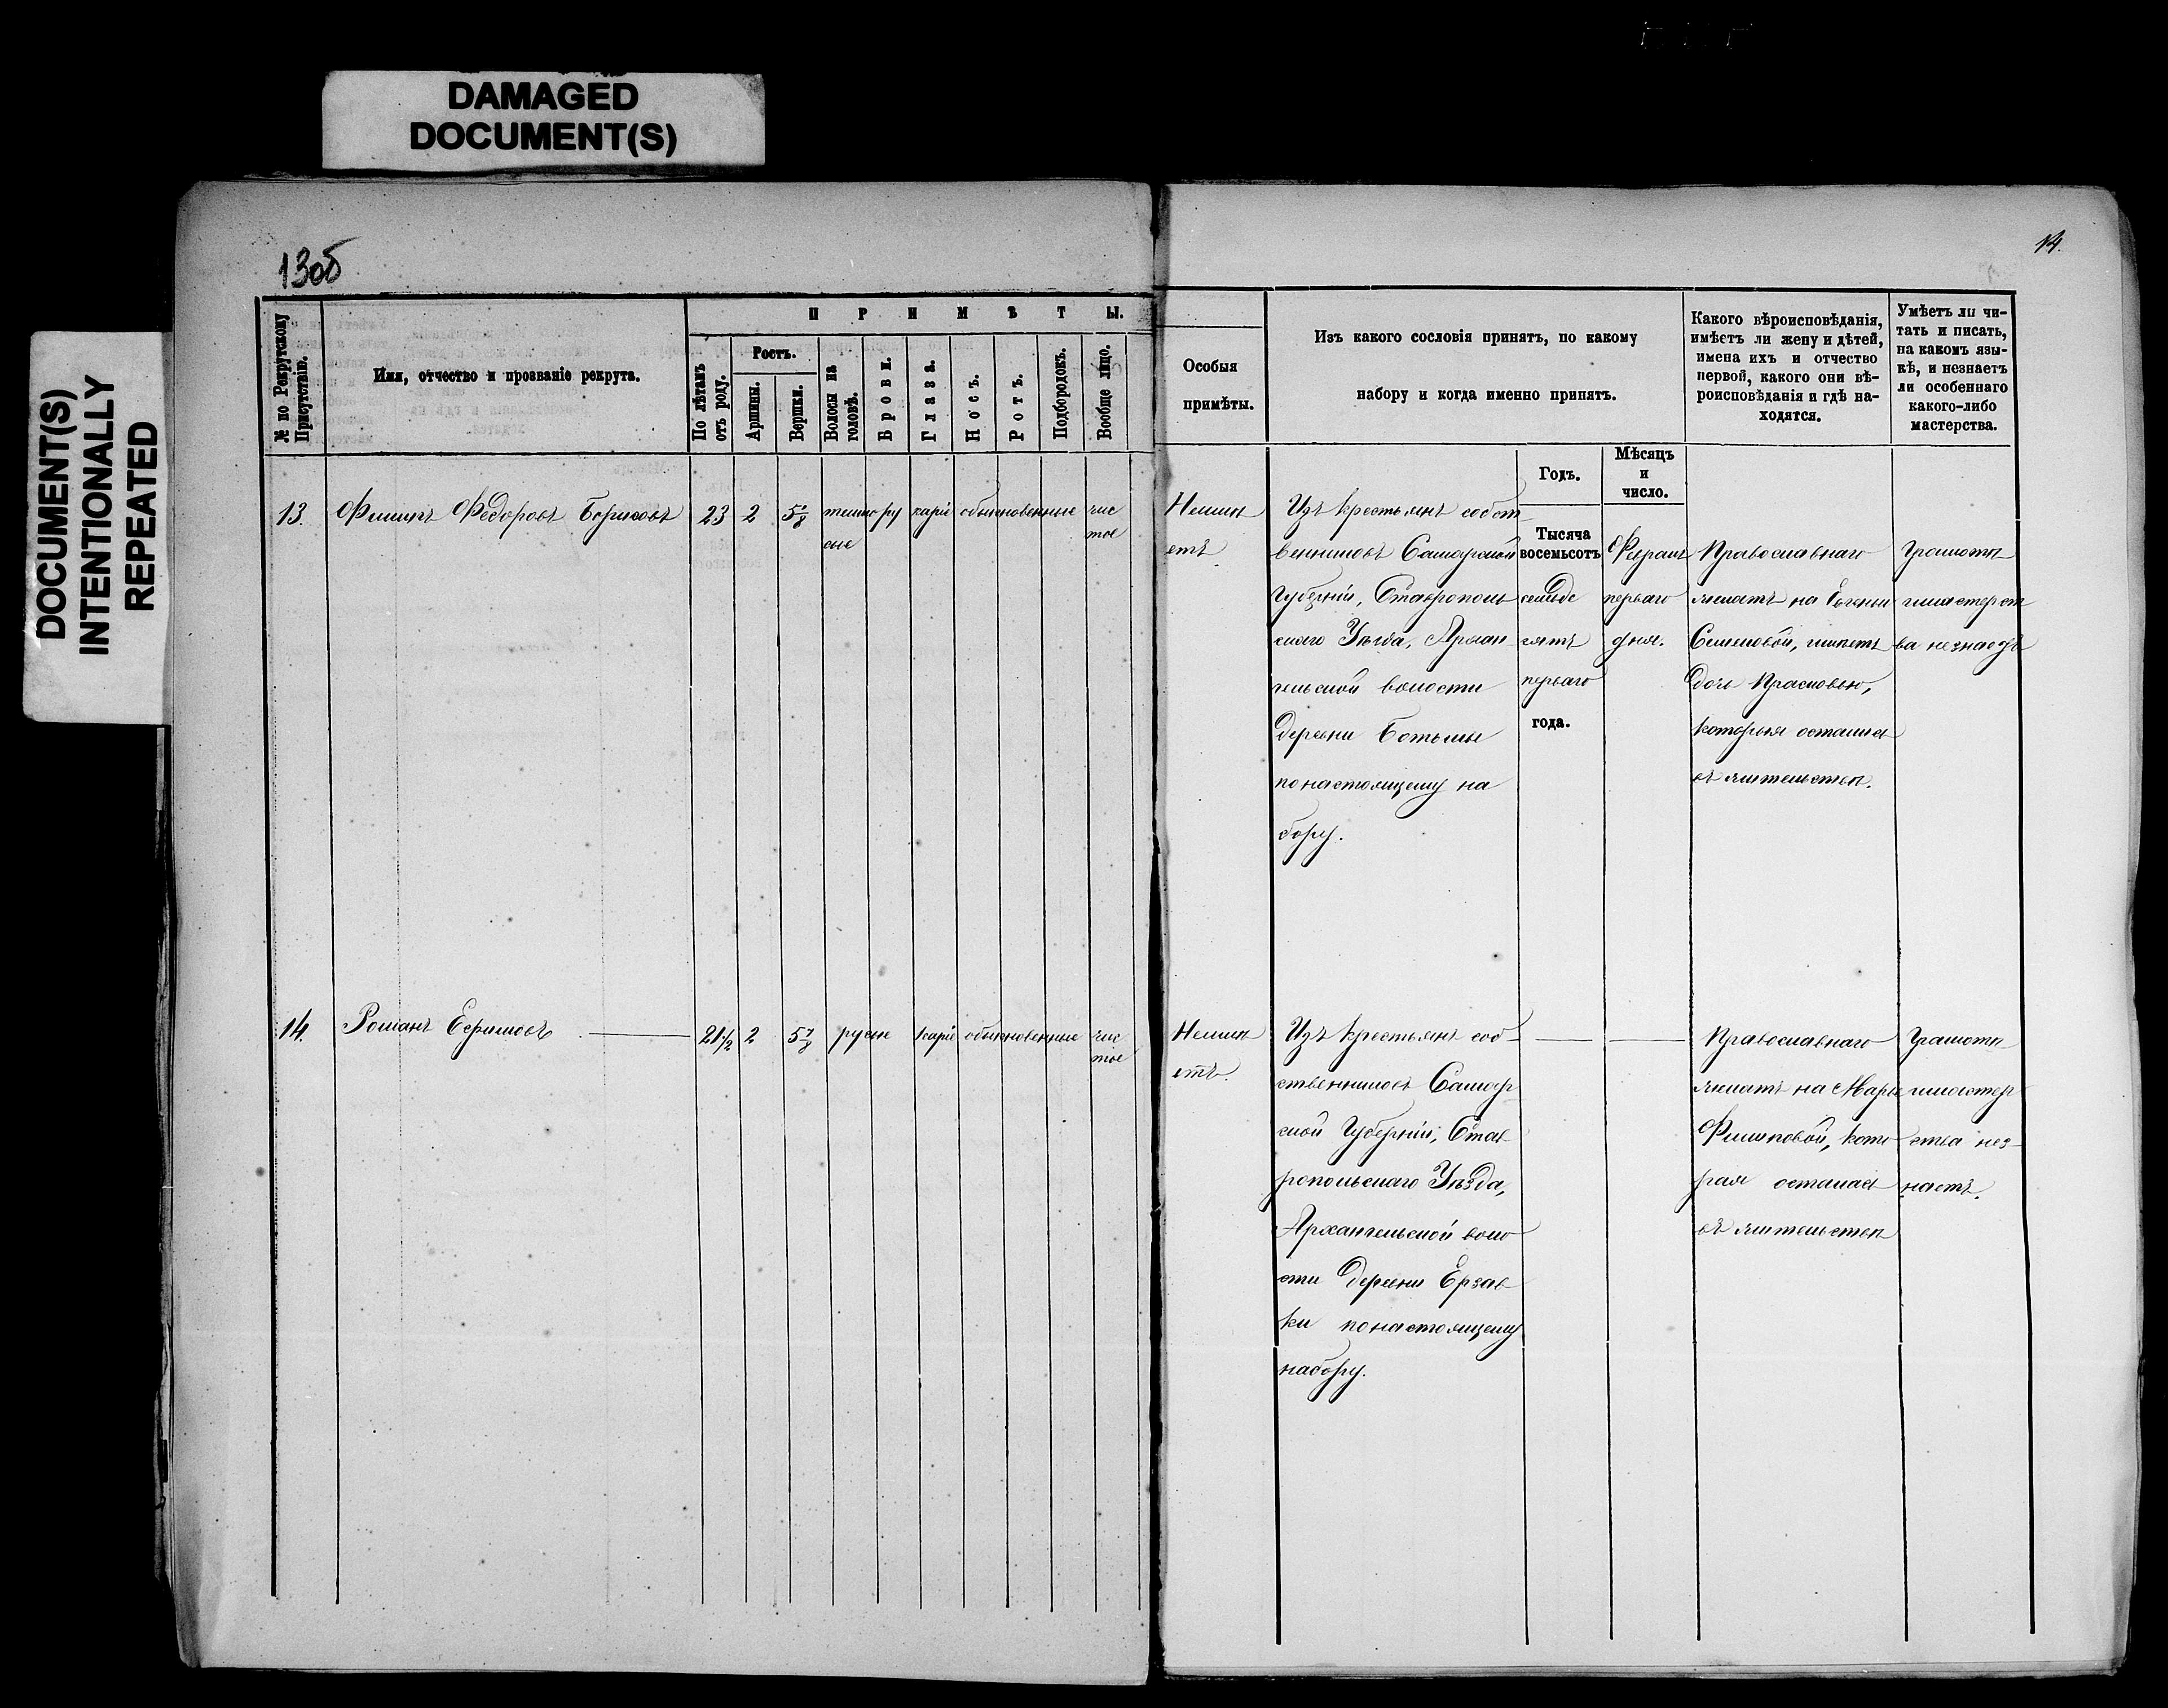 DAMAGED
DOCUMENT(S)
DOCUMENT(S)
INTENTIONALLY
REPEATED
13об
14.
№ по Рекрутскому
Присутствію.
Имя, отчество и прозваніе рекрута.
ПРИМѢТЫ.
По лѣтамъ
отъ роду.
Ростъ.
Аршины.
Вершки.
Волосы на
головѣ.
Брови.
Глаза.
Носъ.
Ротъ.
Подбородокъ.
Вообще лицо.
Особыя
примѣты.
Изъ какого сословія принятъ, по какому
набору и когда именно принятъ.
Какого вѣроисповѣданія,
имѣетъ ли жену и дѣтей,
имена ихъ и отчество
первой, какого они вѣ-
роисповѣданія и гдѣ на-
ходятся.
Умѣетъ ли чи-
тать и писать,
на какомъ язы-
кѣ, и незнаетъ
ли особеннаго
какого-либо
мастерства.
Годъ.
Мѣсяцъ
и
число.
13.
Филипъ Федоровъ Борисовъ
23
2
темнору
сые
карие
обыкновенные
чис
тое
Неимѣ
етъ.
Изъ крестьянъ собст-
венниковъ Самарской
Губерніи, Ставрополь
скаго Уѣзда, Архан-
гельской волости
деревни
по настоящему на
бору.
Тысяча
восемьсотъ
семьде
сятъ
перваго
года.
перваго
дня.
Православнаго
женатъ на
Семеновой, имѣетъ
дочь Прасковью,
которыя остались
въ жительствѣ.
Грамотѣ
и мастерст
ва незнаетъ
14.
Романъ Ефимовъ
21½
2
5⅞
русые
карие
обыкновенные
чис
тое
Неимѣ
етъ.
Изъ крестьянъ соб-
ственниковъ Самар
ской Губерніи, Став
ропольскаго Уѣзда,
Архангельской воло
сти деревни Ерзов
ки по настоящему
набору.
Православнаго
женатъ на Марье
Филиповой, кото
рая осталась
въ жительствѣ
Грамотѣ
и мастер
ства нез-
наетъ.